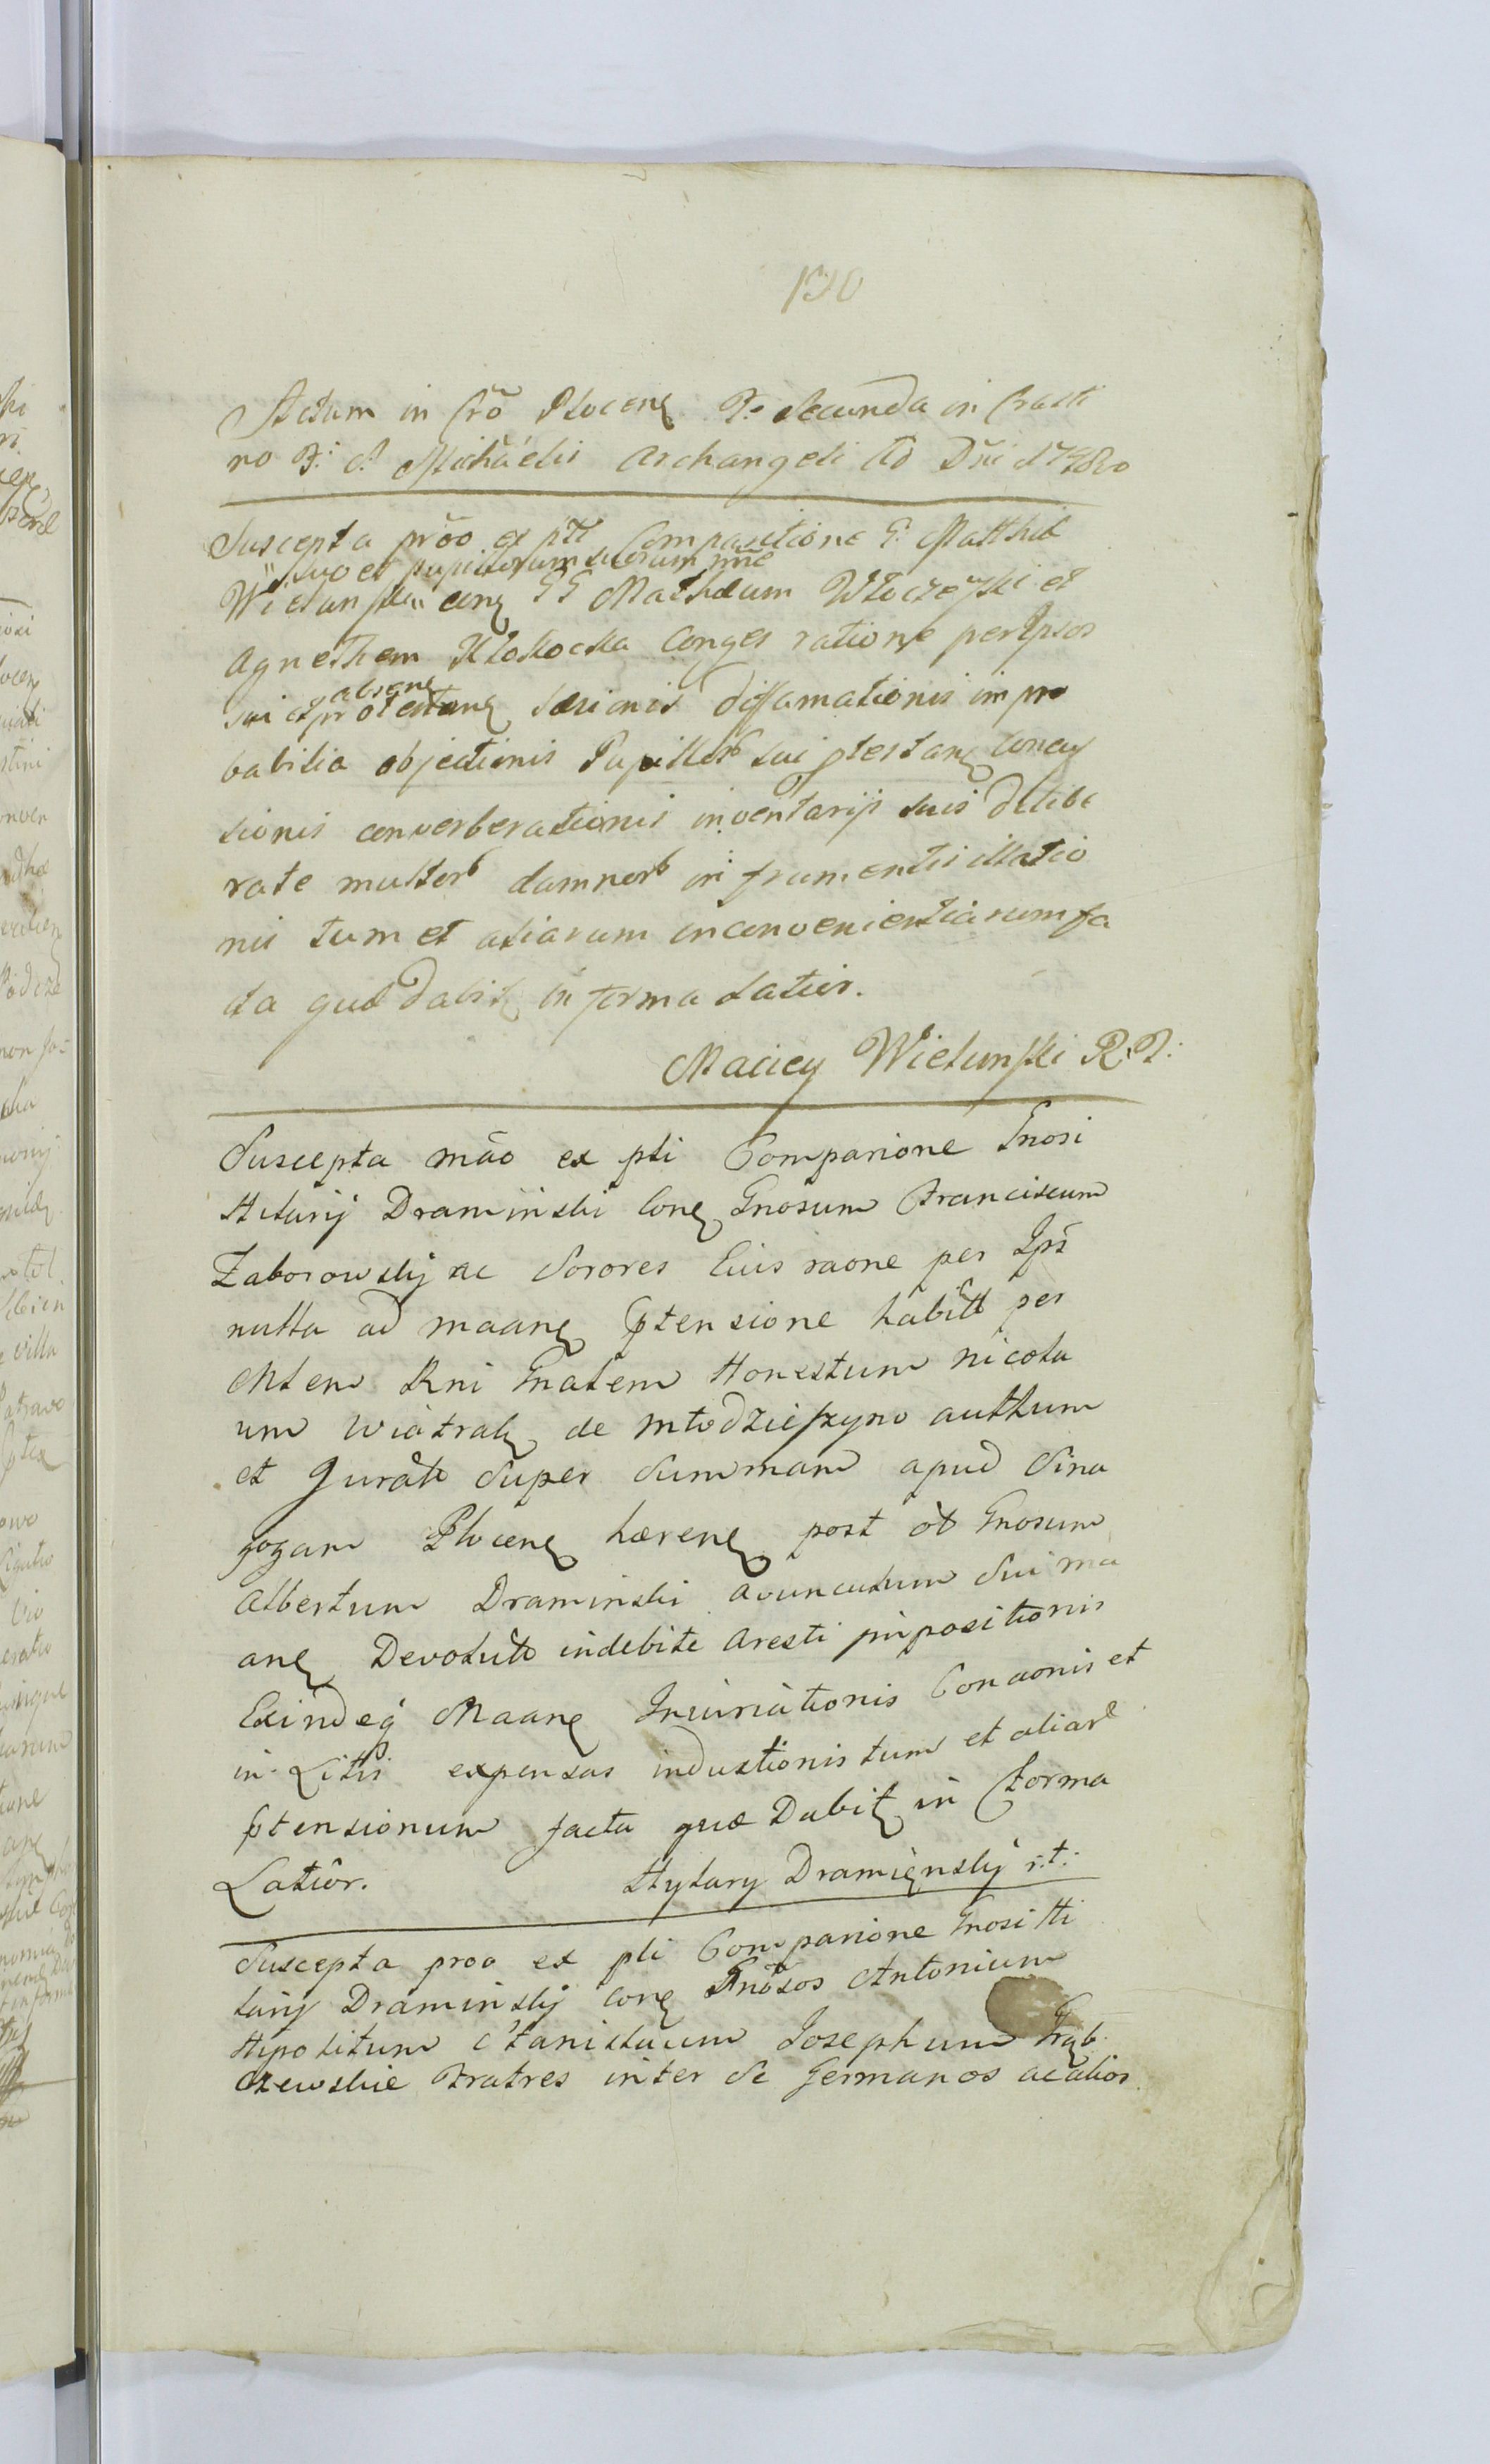 130
Actum in Cro Plocenę Fa Secunda in Crasti
no F: S. Michaelis Archangeli Ao Dni 1780
Suscepta proo ex ptt Comparitione G. Matthie
suo et pupillorum suorum nne
Wielunski conę GG Mathæum Włoczewski et
Agnethem Kłokocka Conges ratione per Ipsos
absenę
sui et protestanę læsionis diffamationis impro
babilia objectionis Pupillor sui ptestanę Concus
sionis converberationis inventarij suis delibe
rate multor damnor in frumentis illatio
nis tum et aliarum inconvenientiarum fa
cta quæ dabitę in forma latior.
Maciey Wielunski R.P.
Suscepta mão ex pti Comparione Gnosi
Hilarij Draminski Conę Gnosum Franciscum
Zaborowskij ac Sorores Eius raone per Ips
nulla ad maanę ptensione habitt per
Mtem Rni Gnalem Honestum Nicola
um Wiatralę de Młodzieszyno authum
et Juratt Super Summam apud Sina
gogam Plocenę hærenę post ot Gnosum
Albertum Draminski avunculum Sui ma
anę Devolutt indebite Aresti impositionis
Exindeq Maanę Iniuriationis Conaonis et
in Litis expensas inductionis tum et aliar
ptensionum facta quæ Dabitę in Forma
Latior. Hylary Dramięnsky r.t.
Suscepta proo ex pti Comparione Gnosi Hi
larij Draminskij Conę Gnosos Antonium
Hipolitum Stanislaum Josephum Grąb
czewskie Fratres inter se Germanos ac alios